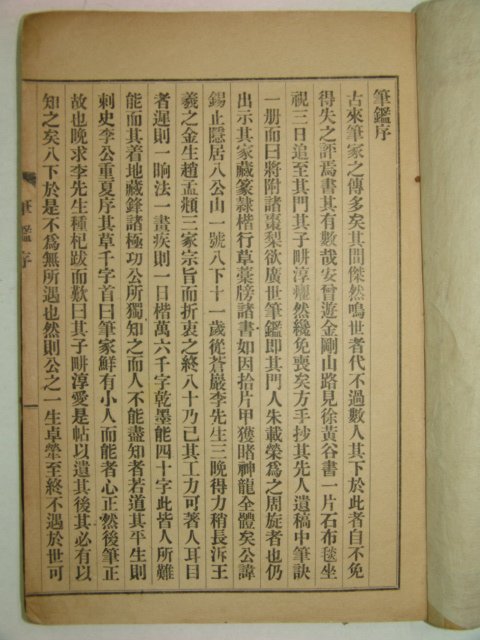 筆鑑序
古來筆家之傳多矣其間傑然鳴世者代不過數人其下於此者自不免
得失之評焉書其有數哉安曾遊金剛山路見徐黃谷書一片石布毯坐
視三日追至其門其子畊淳癯然纔免喪矣方手抄其先人遺稿中筆訣
一册而曰將附諸棗梨欲廣世筆鑑即其門人朱載榮爲之周旋者也仍
出示其家藏篆隷楷行草藁牓諸書如因拾片甲獲睹神龍全體矣公諱
錫止隱居八公山一號八下十一歲從蒼巖李先生三晚得力稍長泝王
羲之金生趙孟頫三家宗旨而折衷之終八十乃已其工力可著人耳目
者遲則一晌法一畫疾則一日楷萬六千字乾墨能四十字此皆人所難
能而其着地藏鋒諸極功公所獨知之而人不能盡知者若道其平生則
刺史李公重夏序其草千字首曰筆家鮮有小人而能者心正然後筆正
故也晚求李先生種杞跋而歎曰其子畊淳愛是帖以遺其後其必有以
知之矣八下於是不爲無所遇也然則公之一生卓犖至終不遇於世可
筆鑑 序